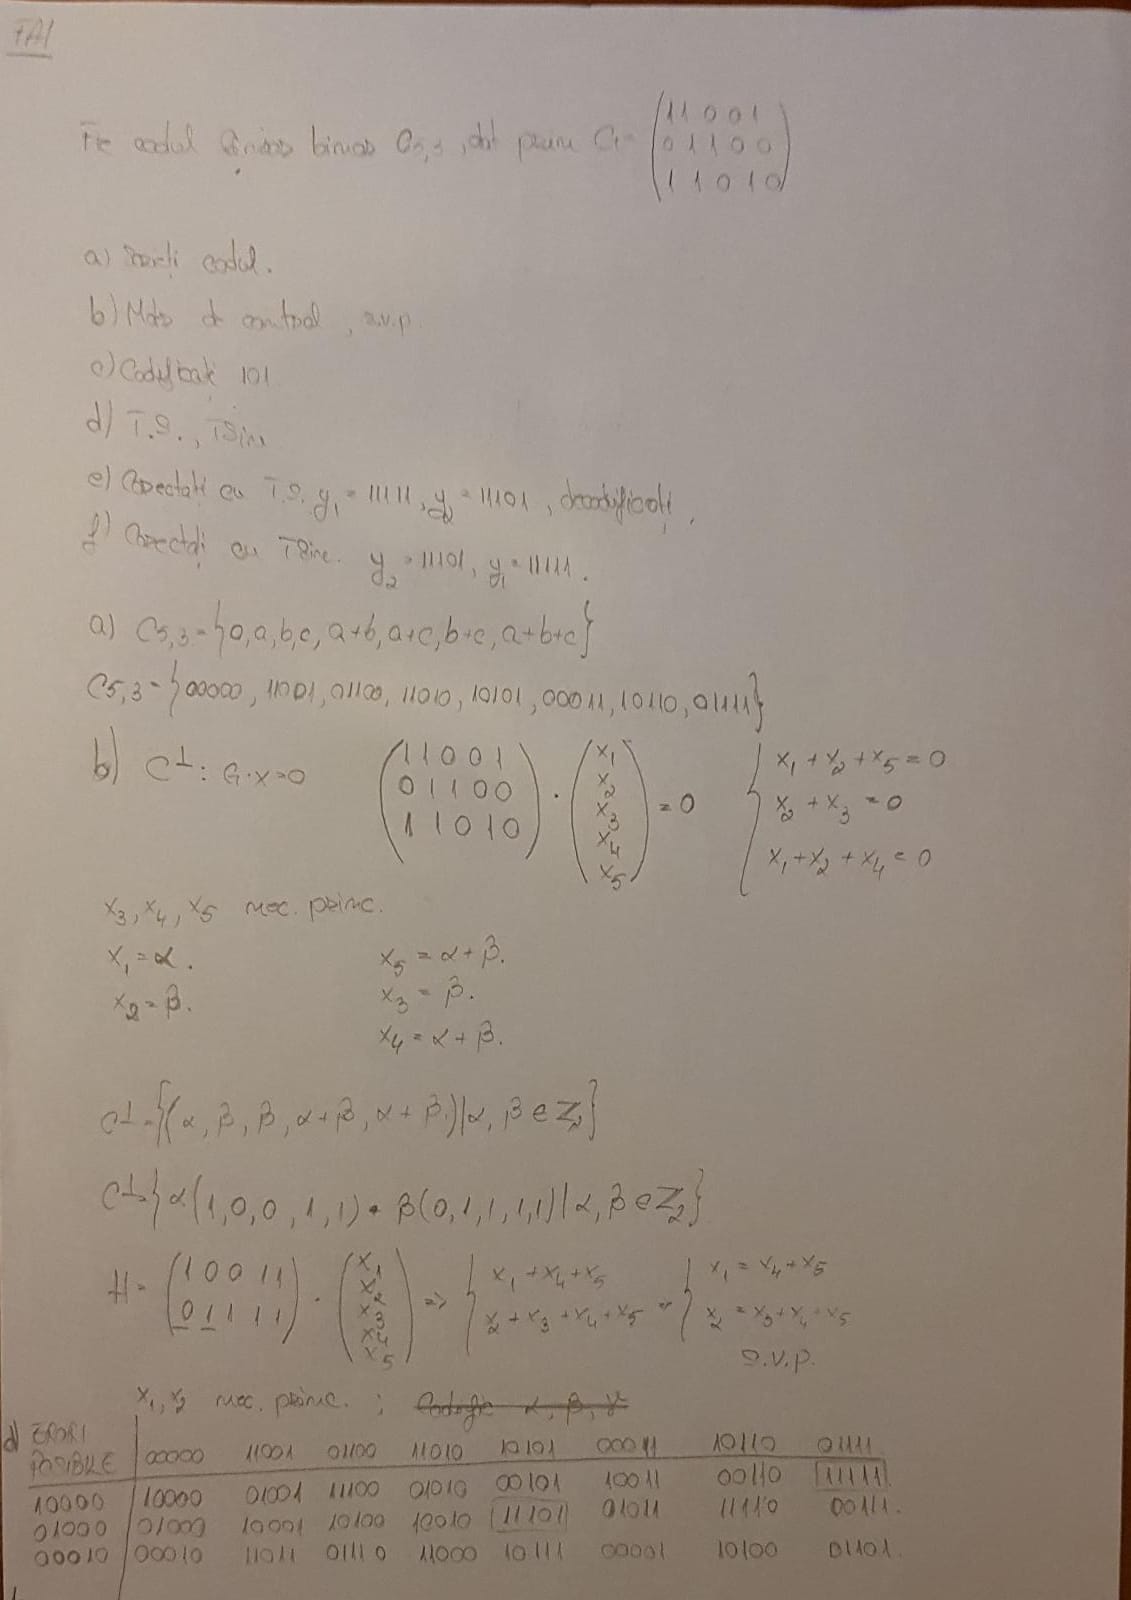 FA1
Fie codul liniar binar C5,3, dat prin G = (11001
01100
11010)
a) Scrieți codul.
b) Matr de control, s.v.p.
c) Codificați 101
d) T.S., TSin
e) Corectați cu T.S. y1 = 11111, y2 = 11101, decodificați.
f) Corectați cu TSin. y2 = 11101, y1 = 11111.
a) C5,3 = {0,a,b,c, a+b, a+c, b+c, a+b+c}
C5,3 = {00000, 11001, 01100, 11010, 10101, 00011, 10110, 01111}
b) C⊥: G·x=0 (11001
01100
11010) · (x1
x2
x3
x4
x5) = 0 { x1+x2+x5=0
x2+x3=0
x1+x2+x4=0
x3, x4, x5 nec. princ.
x1=α. x5=α+β.
x2=β. x3=β.
x4=α+β.
C⊥={(α, β, β, α+β, α+β)|α, β∈Z2}
C⊥={α(1,0,0,1,1)+β(0,1,1,1,1)|α, β∈Z2}
H= (10011
01111) · (x1
x2
x3
x4
x5) => { x1+x4+x5
x2+x3+x4+x5 => { x1=x4+x5
x2=x3+x4+x5
s.v.p.
x1, x2 nec. princ. ; Codific α, β, γ
d) ERORI
POSIBILE 00000 11001 01100 11010 10101 00011 10110 01111
10000 10000 01001 11100 01010 00101 10011 00110 11111
01000 01000 10001 10100 10010 11101 01011 11110 00111.
00010 00010 11011 01110 11000 10111 00001 10100 01101.